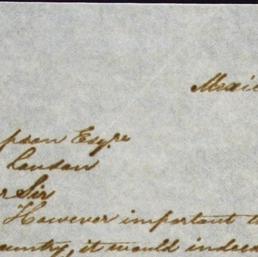 Mexic
pson Esqre
London
r Sir
However important t
country, it would indeed